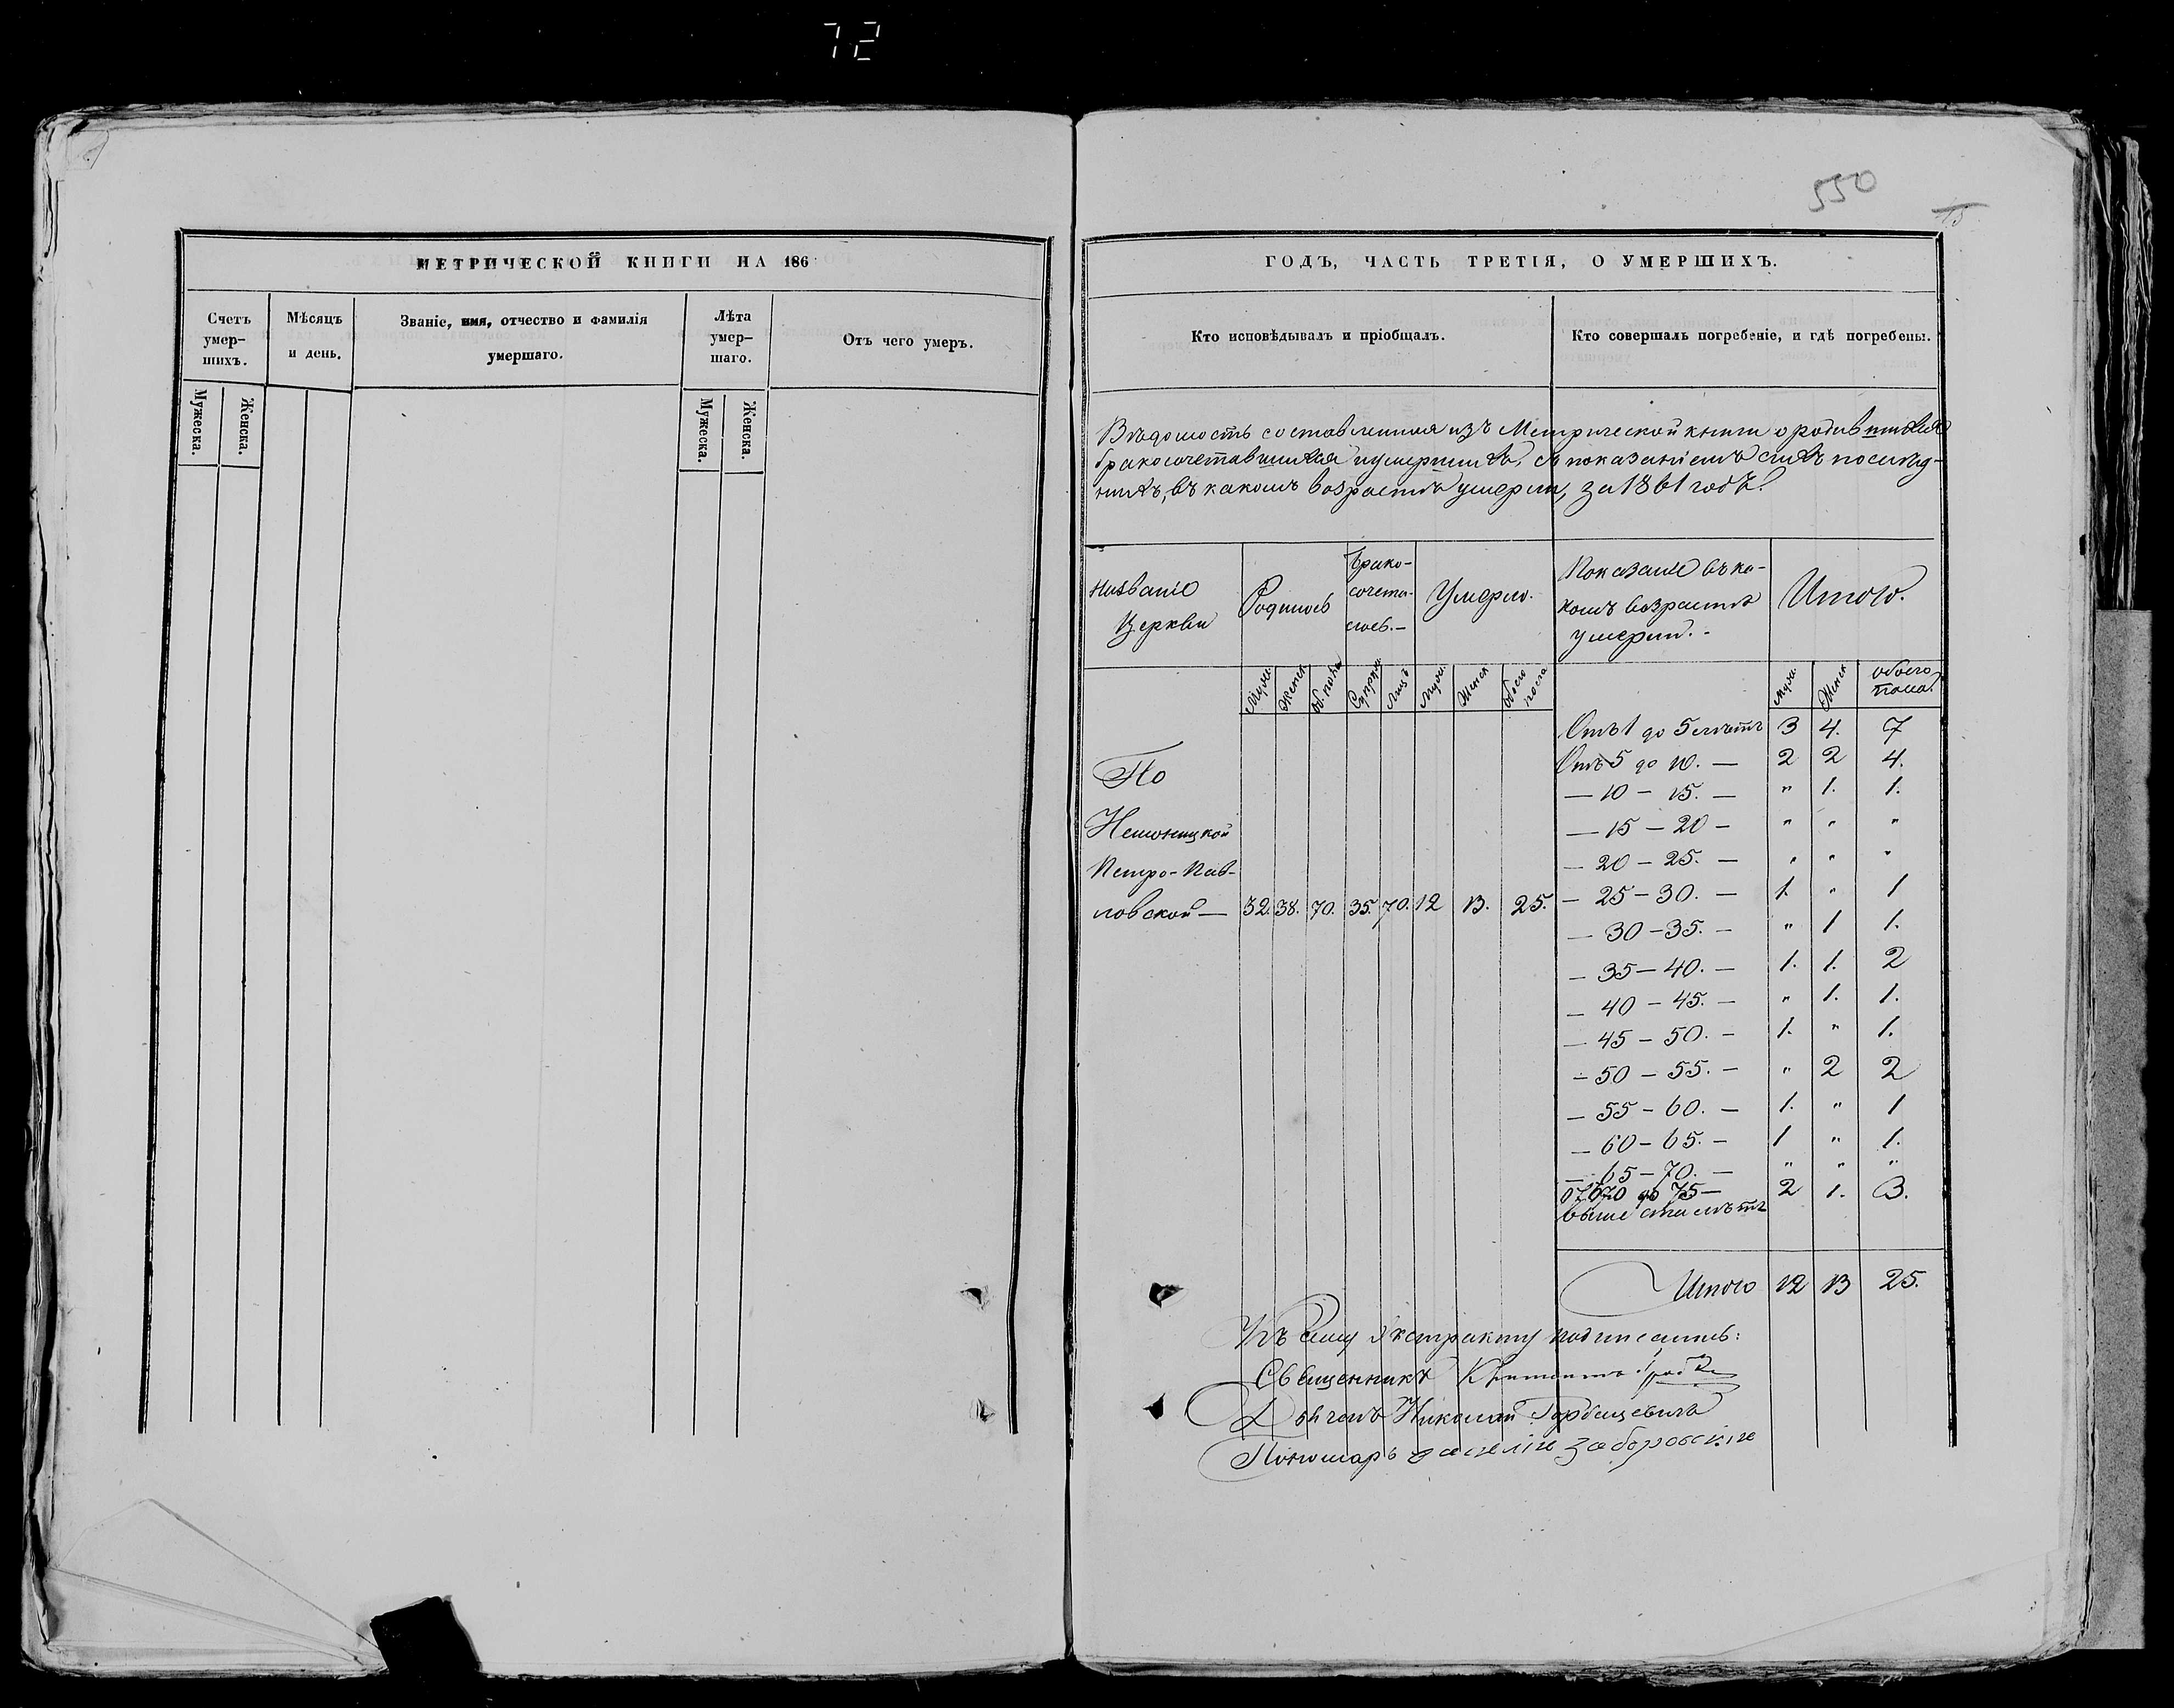 72
МЕТРИЧЕСКОЙ КНИГИ НА 186
Счетъ умер-шихъ.
Мѣсяцъ и день.
Званіе, имя, отчество и фамилія умершаго.
Лѣта умер-шаго.
Отъ чего умеръ.
Мужеска.
Женска.
Мужеска.
Женска.
550
15
ГОДЪ, ЧАСТЬ ТРЕТІЯ, О УМЕРШИХЪ.
Кто исповѣдывалъ и пріобщалъ.
Кто совершалъ погребеніе, и гдѣ погребены.
Вѣдомость составленная изъ Метрической книги о родившихся
бракосочетавшихся и умершихъ, съ показаніемъ сихъ послѣд-
нихъ, въ какомъ возрастѣ умерли, за 1861 годъ.
Названіе Церкви
Родилось
Брако-сочета-лось.-
Умерло.
Показаніе въ ка-комъ возрастѣ умерли.-
Итого.
Муж. Женск. Об. пола Супруж. Лицъ Муж. Женск обоего пола
Муж. Женск обоего пола.
Отъ 1 до 5 лѣтъ 3 4. 7
Отъ 5 до 10. — 2 2 4.
— 10 — 15. — " 1. 1.
— 15 — 20 — " " "
— 20 — 25. — " " "
— 25 — 30. — 1. " 1
— 30 — 35. — " 1 1.
— 35 — 40. — 1. 1. 2
— 40 — 45. — " 1. 1.
— 45 — 50. — 1. " 1.
— 50 — 55. — " 2 2
— 55 — 60. — 1. " 1
— 60 — 65. — 1 " 1.
— 65 — 70. — " " "
отъ 70 до 75 — 2 1. 3.
выше ста лѣтъ
По
Петро-Пав-
ловской — 32. 38. 70. 35. 70. 12 13. 25.
Итого 12 13 25.
Къ сему экстракту подписались:
Священникъ
Дьячекъ Николай Горбацевичъ
Пономарь Василій Заборовскій